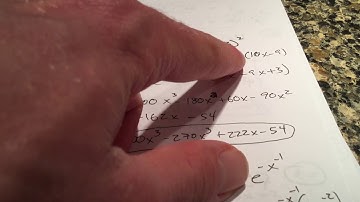 )²
(10x-9)
9x+3)
00x³-180x²+60x-90x²
-162x-54
00x³-270x²+222x-54
e^-x^-1
-x^-1(-2)